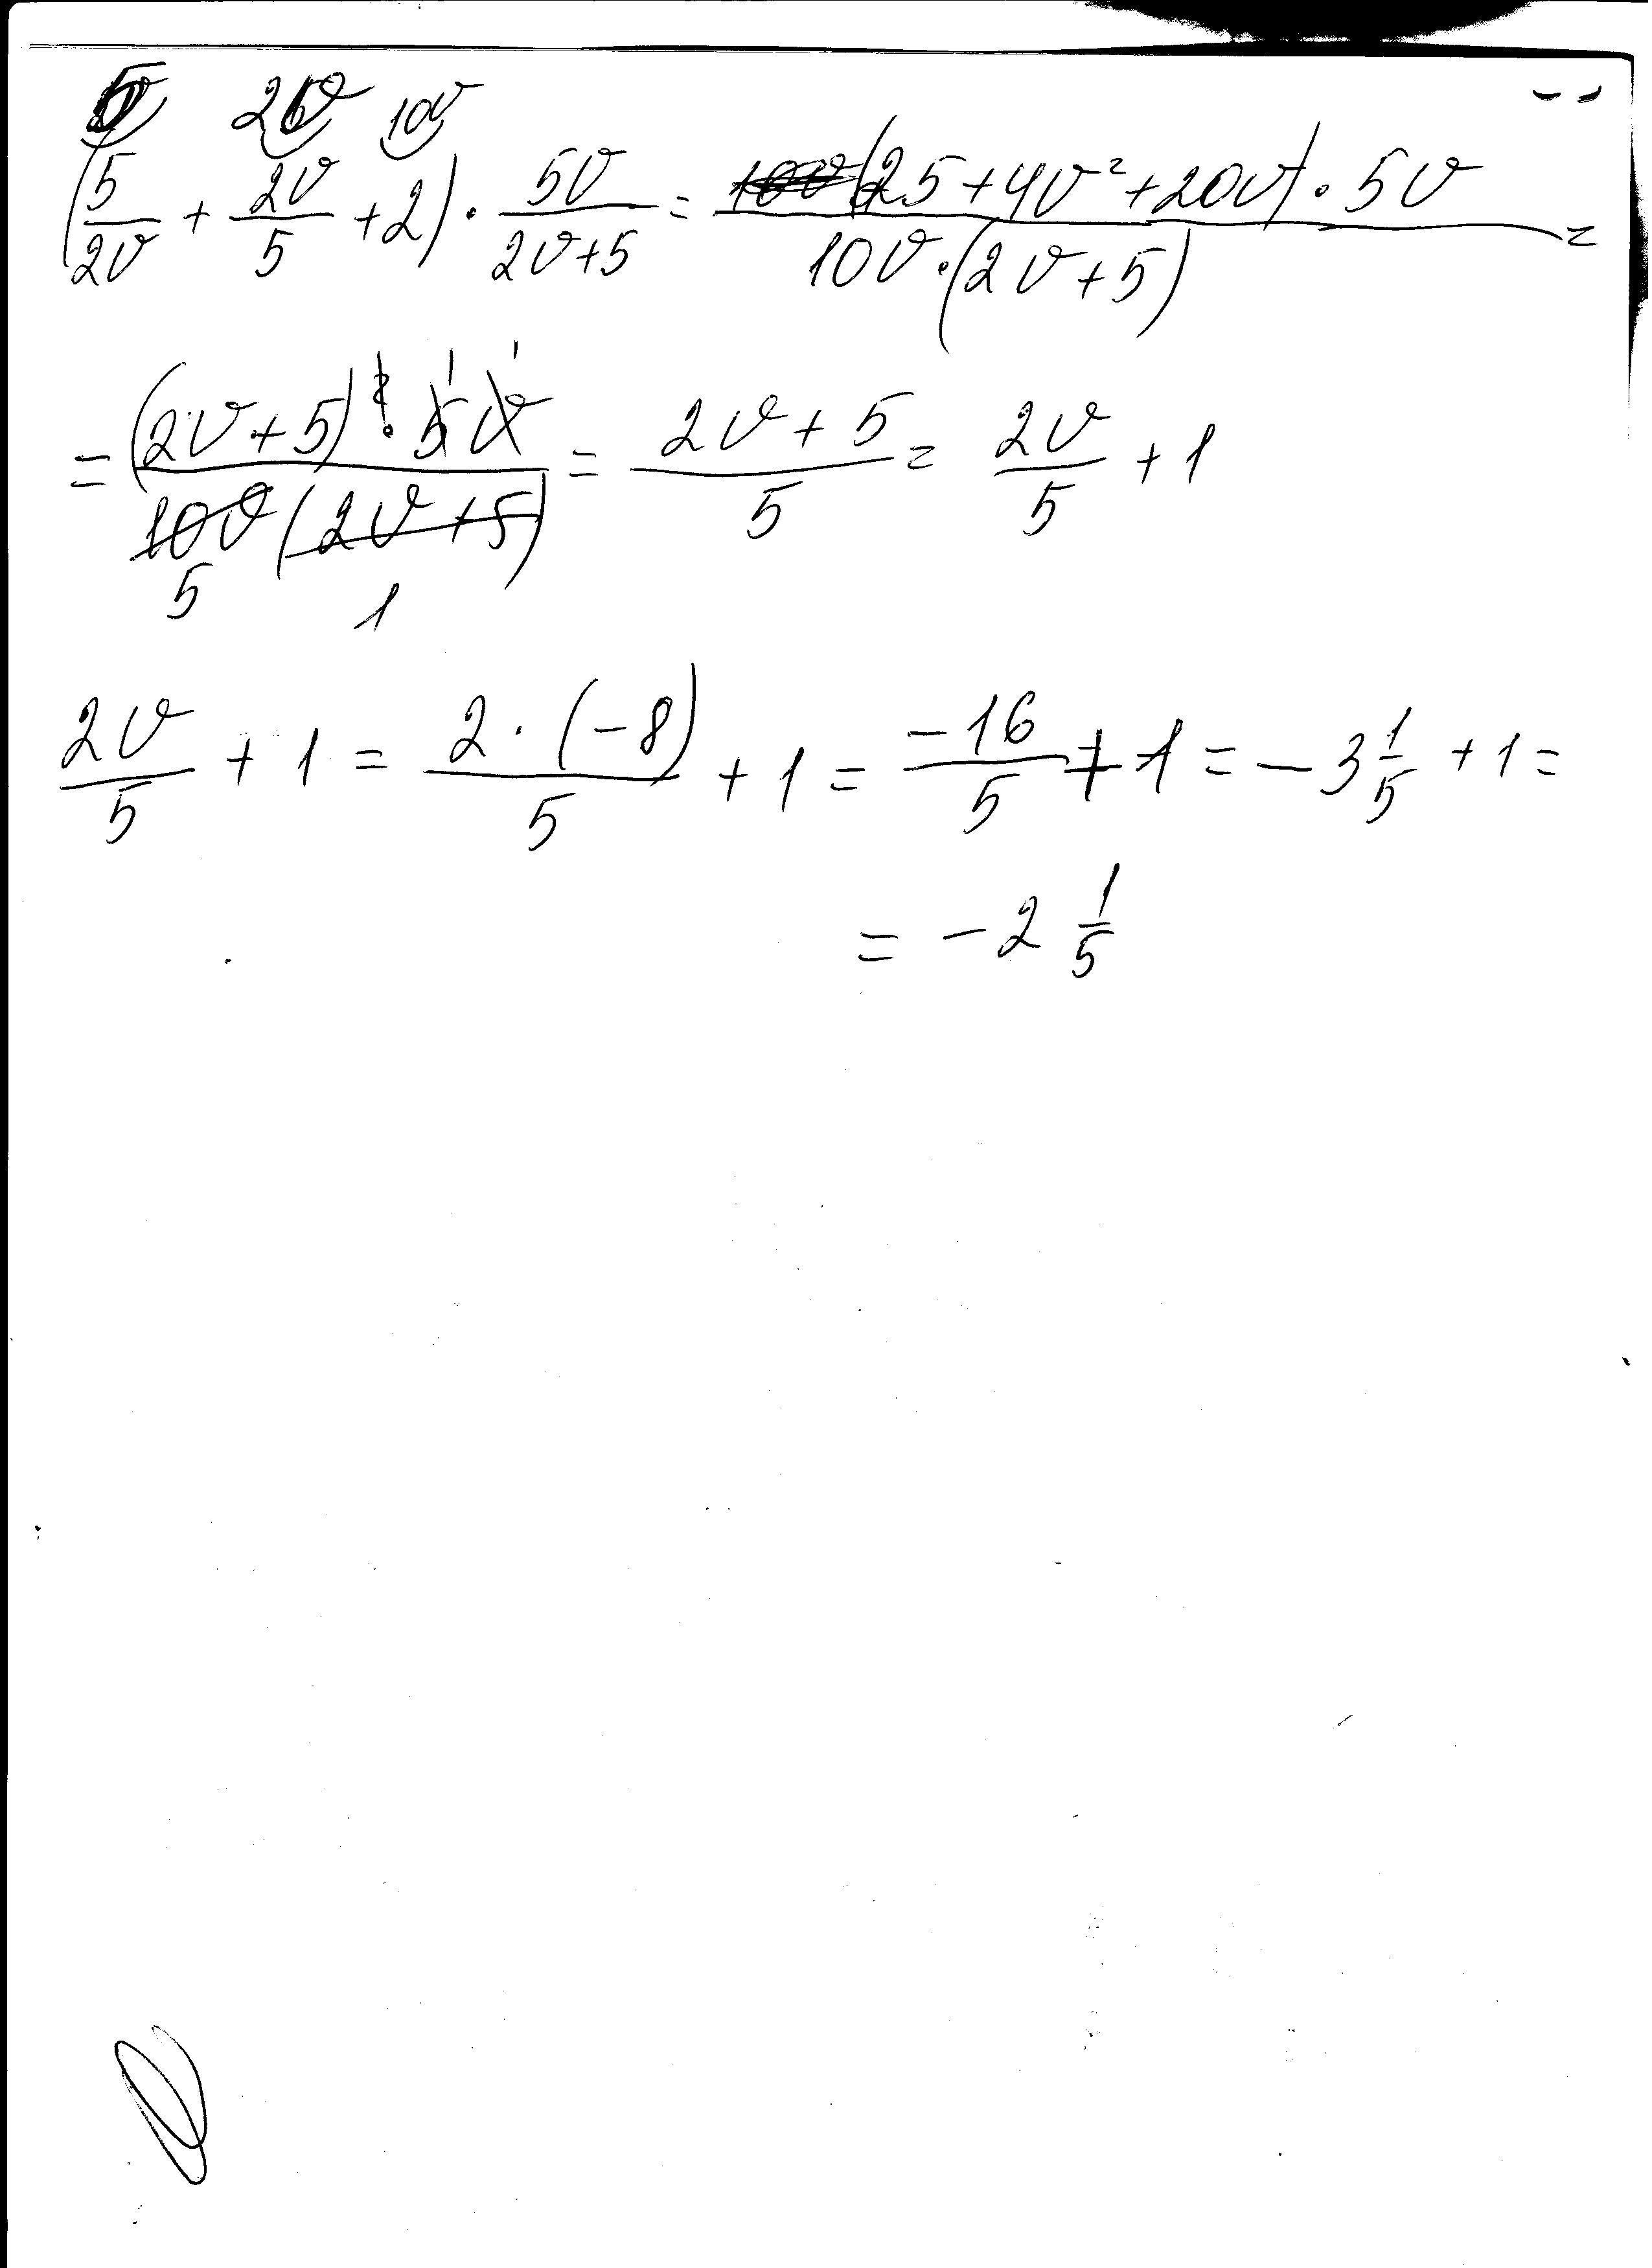 5 2v 10v
(5/2v + 2v/5 + 2) · 5v/2v+5 = (25+4v²+20v) · 5v / 10v·(2v+5) =
= (2v+5)² · 5v / 10v (2v+5) = 2v+5 / 5 = 2v/5 + 1
5 1
2v/5 + 1 = 2·(-8)/5 + 1 = -16/5 + 1 = -3 1/5 + 1 =
= -2 1/5